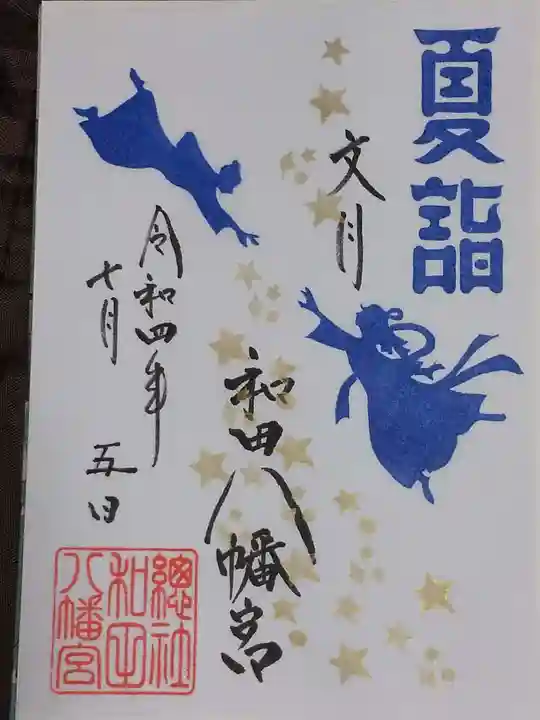 夏詣
文月
和田八幡宮
令和四年
七月
五日
總社
和田
八幡宮